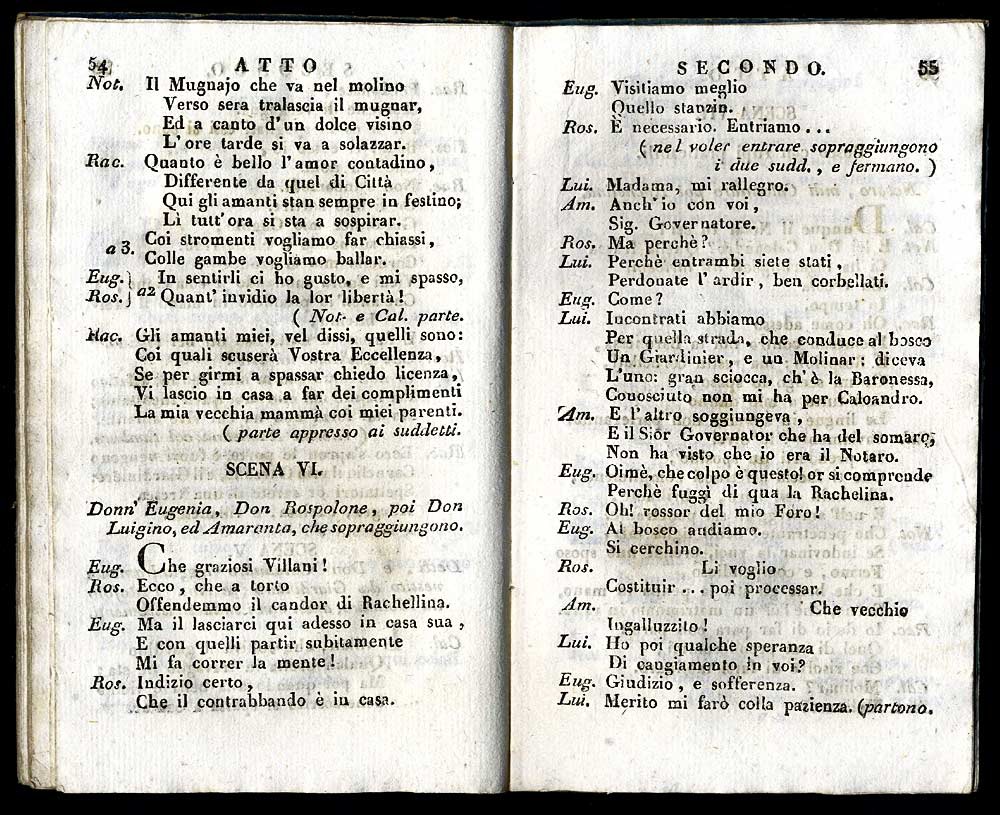 54 ATTO
Not. Il Mugnajo che va nel molino
Verso sera tralascia il mugnar,
Ed a canto d'un dolce visino
L'ore tarde si va a solazzar.
Rac. Quanto è bello l'amor contadino,
Differente da quel di Città
Qui gli amanti stan sempre in festino;
Lì tutt'ora si sta a sospirar.
a 3. Coi stromenti vogliamo far chiassi,
Colle gambe vogliamo ballar.
Eug.} In sentirli ci ho gusto, e mi spasso,
Ros.} a2 Quant' invidio la lor libertà!
( Not. e Cal. parte.
Rac. Gli amanti miei, vel dissi, quelli sono:
Coi quali scuserà Vostra Eccellenza,
Se per girmi a spassar chiedo licenza,
Vi lascio in casa a far dei complimenti
La mia vecchia mammà coi miei parenti.
( parte appresso ai suddetti.
SCENA VI.
Donn' Eugenia, Don Rospolone, poi Don
Luigino, ed Amaranta, che sopraggiungono.
Eug. Che graziosi Villani!
Ros. Ecco, che a torto
Offendemmo il candor di Rachellina.
Eug. Ma il lasciarci qui adesso in casa sua,
E con quelli partir subitamente
Mi fa correr la mente!
Ros. Indizio certo,
Che il contrabbando è in casa.
SECONDO. 55
Eug. Visitiamo meglio
Quello stanzin.
Ros. È necessario. Entriamo...
( nel voler entrare sopraggiungono
i due sudd., e fermano. )
Lui. Madama, mi rallegro.
Am. Anch'io con voi,
Sig. Governatore.
Ros. Ma perchè?
Lui. Perchè entrambi siete stati,
Perdonate l'ardir, ben corbellati.
Eug. Come?
Lui. Incontrati abbiamo
Per quella strada, che conduce al bosco
Un Giardinier, e un Molinar: diceva
L'uno: gran sciocca, ch'è la Baronessa,
Conosciuto non mi ha per Caloandro.
Am. E l'altro soggiungeva,
E il Siòr Governator che ha del somaro;
Non ha visto che io era il Notaro.
Eug. Oimè, che colpo è questo! or si comprende
Perchè fuggì di qua la Rachelina.
Ros. Oh! rossor del mio Foro!
Eug. Al bosco andiamo.
Si cerchino.
Ros. Li voglio
Costituir ... poi processar.
Am. Che vecchio
Ingalluzzito!
Lui. Ho poi qualche speranza
Di cangiamento in voi?
Eug. Giudizio, e sofferenza.
Lui. Merito mi farò colla pazienza. (partono.